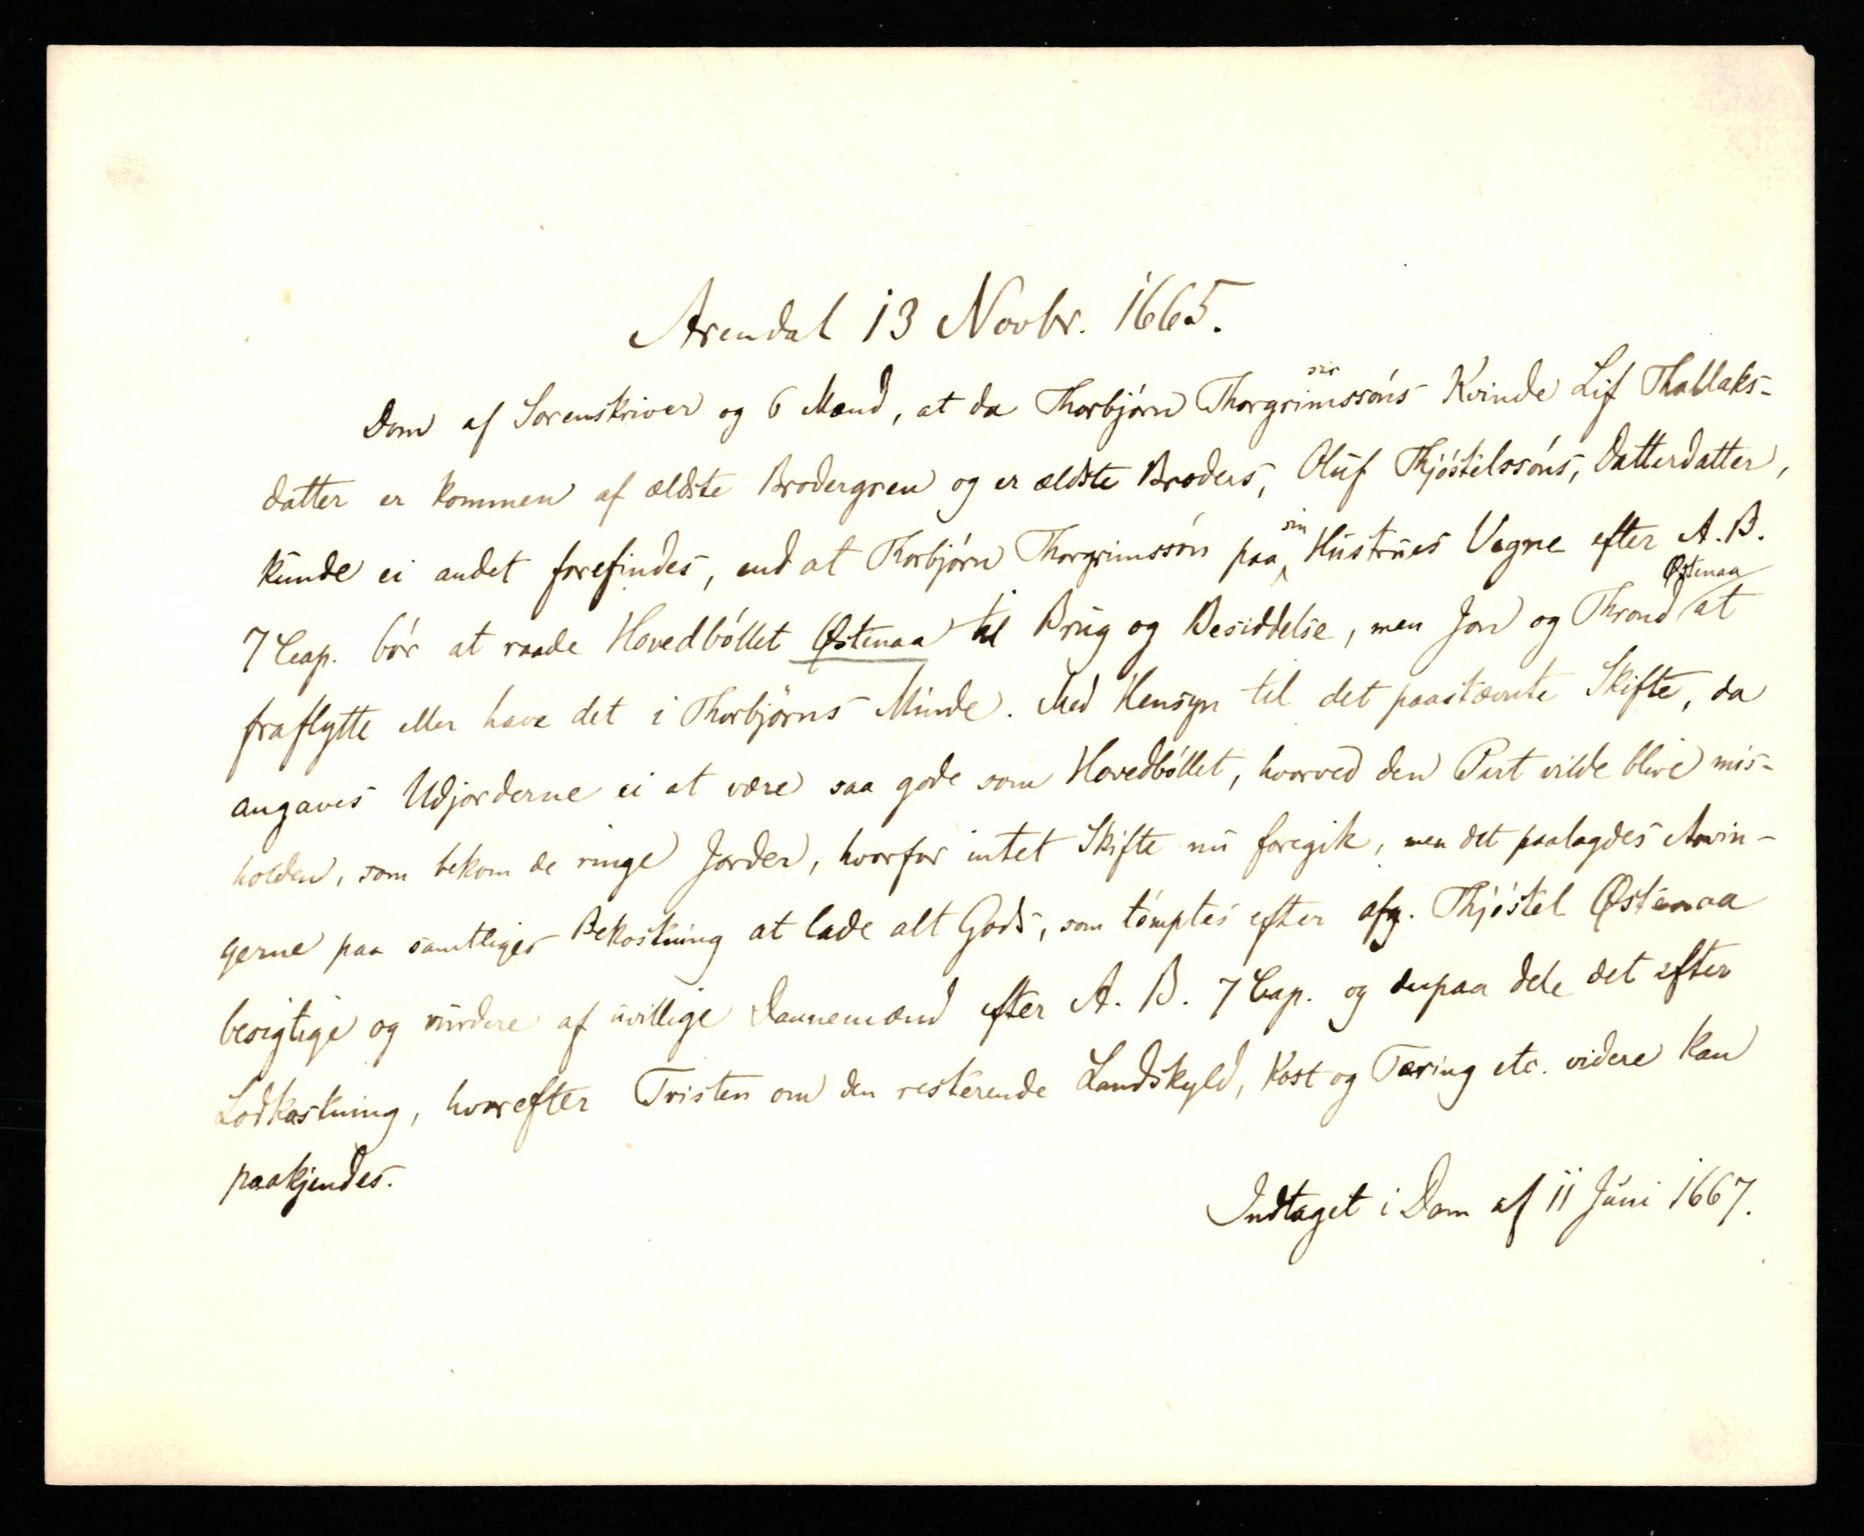 Arendal 13 Novbr. 1665.
Dom af Sorenskriver og 6 Mænd, at da Thorbjørn Thorgrimssøns Kvinde Lif Thallaks-
datter er kommen af ældste Brodergren og er ældste Broders, Oluf Thjøstelssøns, Datterdatter,
kunde ei andet forefindes, end at Thorbjørn Thorgrimssøn paa sin Hustrues Vegne efter A. B.
7 Cap. bør at raade Hovedbøllet Østenaa til Brug og Besiddelse, men Jon og Thrond Østenaa at
fraflytte eller have det i Thorbjørns Minde. Med Hensyn til det paastævnte Skifte, da
angaves Udjorderne ei at være saa gode som Hovedbøllet, hvorved den Part vilde blive mis-
holden, som bekom de ringe Jorder, hvorfor intet Skifte nu foregik, men det paalagdes Arvin-
gerne paa samtliges Bekostning at lade alt Gods, som tømptes efter afg. Thjøstel Østenaa
besigtige og vurdere af uvillige Dannemænd efter A. B. 7 Cap. og derpaa dele det efter
Lodkastning, hvorefter Tvisten om den resterende Landskyld, Kost og Tæring etc. videre kan
paakjendes.
Indtaget i Dom af 11 Juni 1667.